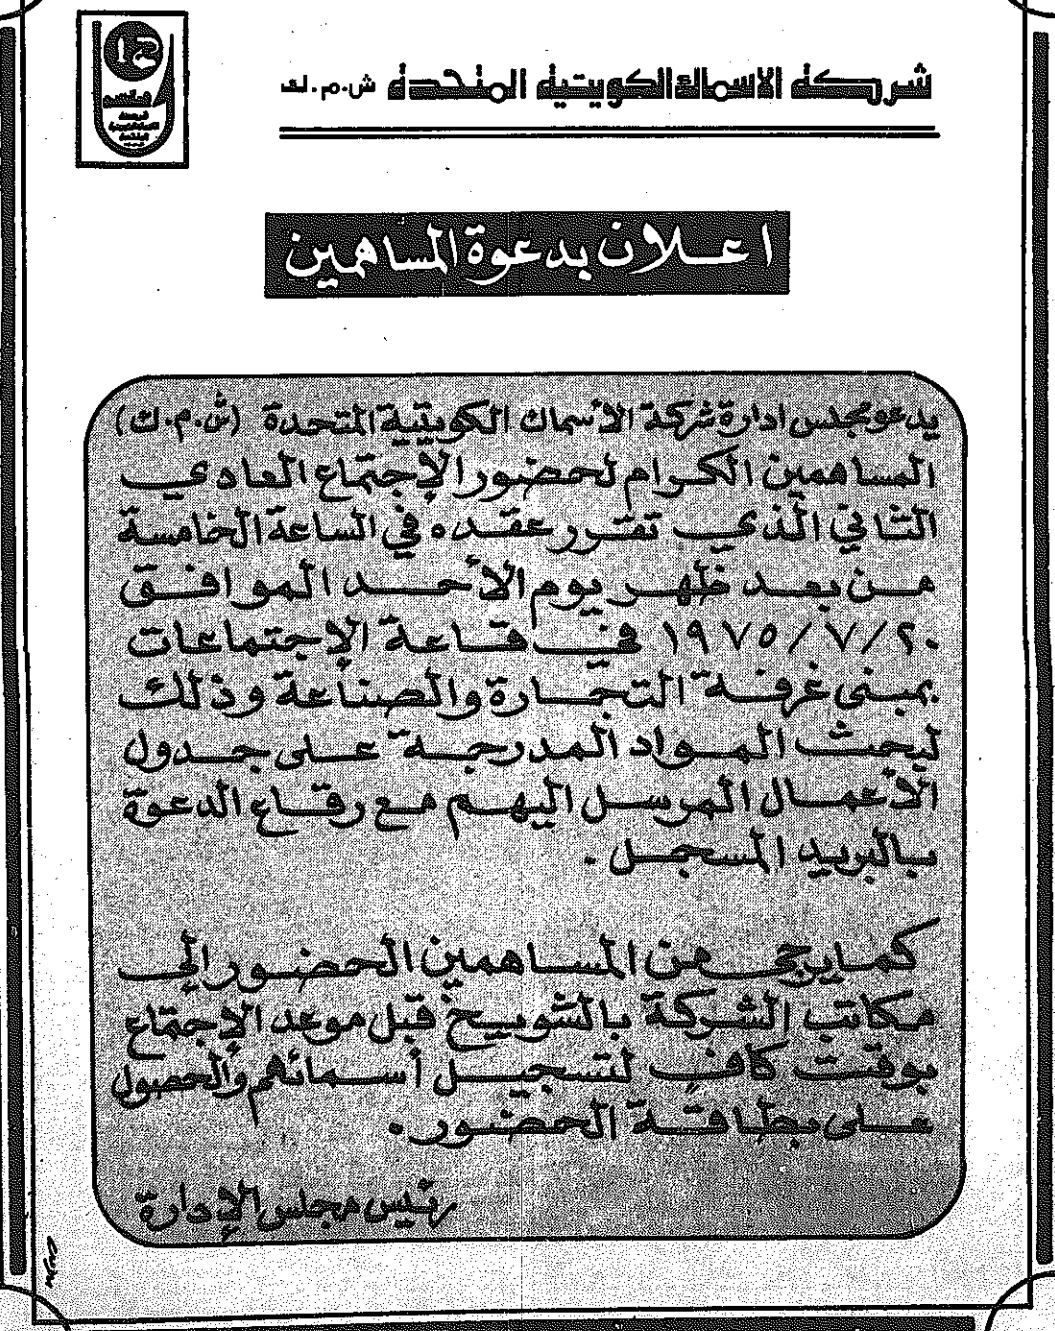 شركة الاسماك الكويتية المتحدة ش.م.ك
اعلان بدعوة المساهمين
يدعو مجلس ادارة شركة الأسماك الكويتية المتحدة (ش.م.ك)
المساهمين الكرام لحضور الإجتماع العادي
الثاني الذي تقرر عقده في الساعة الخامسة
من بعد ظهر يوم الأحد الموافق
٢٠/٧/١٩٧٥ في قاعة الإجتماعات
بمبنى غرفة التجارة والصناعة وذلك
لبحث المواد المدرجة على جدول
الأعمال المرسل اليهم مع رقاع الدعوة
بالبريد المسجل.
كما يرجى من المساهمين الحضور إلى
مكاتب الشركة بالشويخ قبل موعد الإجتماع
بوقت كاف لتسجيل أسمائهم والحصول
على بطاقة الحضور.
رئيس مجلس الإدارة